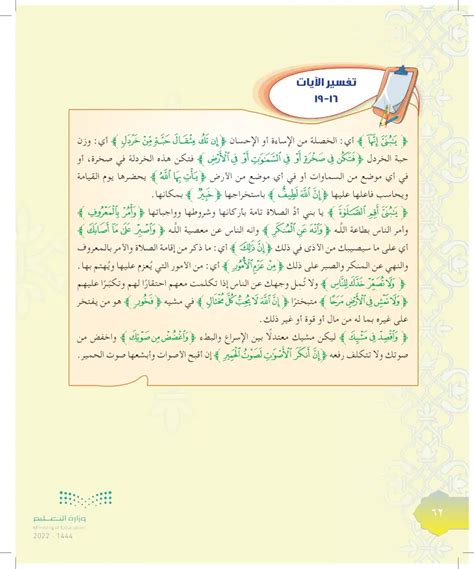 تفسير الآيات
١٦-١٩
﴿ يَٰبُنَيَّ إِنَّهَآ ﴾ أي: الخصلة من الإساءة أو الإحسان ﴿ إِن تَكُ مِثْقَالَ حَبَّةٍ مِّنْ خَرْدَلٍ ﴾ أي: وزن
حبة الخردل ﴿ فَتَكُن فِي صَخْرَةٍ أَوْ فِي ٱلسَّمَٰوَٰتِ أَوْ فِي ٱلْأَرْضِ ﴾ فتكن هذه الخردلة في صخرة، أو
في أي موضع من السماوات أو في أي موضع من الأرض ﴿ يَأْتِ بِهَا ٱللَّهُ ﴾ يحضرها يوم القيامة
ويحاسب فاعلها عليها ﴿ إِنَّ ٱللَّهَ لَطِيفٌ ﴾ باستخراجها ﴿ خَبِيرٌ ﴾ بمكانها.
﴿ يَٰبُنَيَّ أَقِمِ ٱلصَّلَوٰةَ ﴾ يا بني أدِّ الصلاة تامة بأركانها وشروطها وواجباتها ﴿ وَأْمُرْ بِٱلْمَعْرُوفِ ﴾
وأمر الناس بطاعة الله ﴿ وَٱنْهَ عَنِ ٱلْمُنكَرِ ﴾ وانه الناس عن معصية الله ﴿ وَٱصْبِرْ عَلَىٰ مَآ أَصَابَكَ ﴾
أي على ما سيصيبك من الأذى في ذلك ﴿ إِنَّ ذَٰلِكَ ﴾ أي: ما ذكر من إقامة الصلاة والأمر بالمعروف
والنهي عن المنكر والصبر على ذلك ﴿ مِنْ عَزْمِ ٱلْأُمُورِ ﴾ أي: من الأمور التي يُعزم عليها ويُهتم بها.
﴿ وَلَا تُصَعِّرْ خَدَّكَ لِلنَّاسِ ﴾ ولا تُمل وجهك عن الناس إذا تكلمت معهم احتقارًا لهم وتكبرًا عليهم
﴿ وَلَا تَمْشِ فِي ٱلْأَرْضِ مَرَحًا ﴾ متبخترًا ﴿ إِنَّ ٱللَّهَ لَا يُحِبُّ كُلَّ مُخْتَالٍ ﴾ في مشيه ﴿ فَخُورٍ ﴾ هو من يفتخر
على غيره بما له من مال أو قوة أو غير ذلك.
﴿ وَٱقْصِدْ فِي مَشْيِكَ ﴾ ليكن مشيك معتدلًا بين الإسراع والبطء ﴿ وَٱغْضُضْ مِن صَوْتِكَ ﴾ واخفض من
صوتك ولا تتكلف رفعه ﴿ إِنَّ أَنكَرَ ٱلْأَصْوَٰتِ لَصَوْتُ ٱلْحَمِيرِ ﴾ إن أقبح الأصوات وأبشعها صوت الحمير.
٦٢
وزارة التعليم
Ministry of Education
2022 - 1444